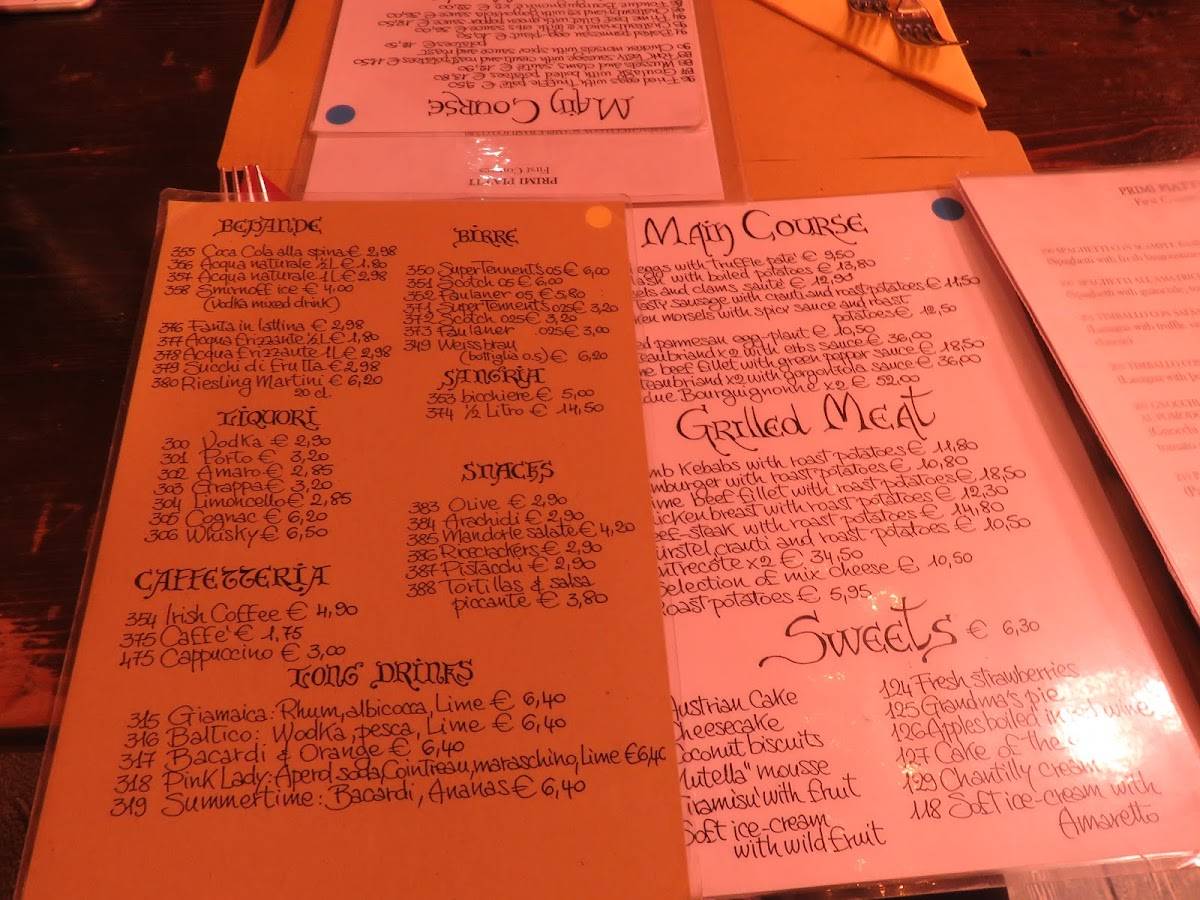 BEVANDE
355 Coca Cola alla spina € 2,98
356 Acqua naturale ½L € 1,80
357 Acqua naturale 1L € 2,98
358 Smirnoff ice € 4,00
(vodka mixed drink)
376 Fanta in lattina € 2,98
377 Acqua frizzante ½L € 1,80
378 Acqua frizzante 1L € 2,98
379 Succhi di frutta € 2,98
380 Riesling Martini € 6,20
20 cl.
LIQUORI
300 Vodka € 2,90
301 Porto € 3,20
302 Amaro € 2,85
303 Grappa € 3,20
304 Limoncello € 2,85
305 Cognac € 6,20
306 Whisky € 6,50
CAFFETTERIA
354 Irish Coffee € 4,90
375 Caffe' € 1,75
475 Cappuccino € 3,00
BIRRE
350 SuperTennent's 05 € 6,00
351 Scotch 05 € 6,00
352 Paulaner 05 € 5,80
371 SuperTennent's 025 € 3,20
372 Scotch 025 € 3,20
373 Paulaner 025 € 3,00
349 Weissbrau
(bottiglia 0.5) € 6,20
SANGRIA
353 bicchiere € 5,00
374 ½ Litro € 14,50
SNACKS
383 Olive € 2,90
384 Arachidi € 2,90
385 Mandorle salate € 4,20
386 Ricecrackers € 2,90
387 Pistacchi € 2,90
388 Tortillas & salsa
piccante € 3,80
LONG DRINKS
315 Giamaica: Rhum, albicocca, Lime € 6,40
316 Baltico: Wodka, pesca, Lime € 6,40
317 Bacardi & Orange € 6,40
318 Pink Lady: Aperol soda, Cointreau, maraschino, Lime € 6,40
319 Summertime: Bacardi, Ananas € 6,40
MAIN COURSE
eggs with Truffle paté € 9,50
with boiled potatoes € 13,80
and clams sauté € 12,90
sausage with crauti and roast potatoes € 11,50
morsels with spicy sauce and roast
potatoes € 12,50
parmesan egg-plant € 10,50
x2 with erbs sauce € 36,00
beef fillet with green pepper sauce € 18,50
x2 with gorgonzola sauce € 36,00
Bourguignonne x2 € 52,00
GRILLED MEAT
Kebabs with roast potatoes € 11,80
with roast potatoes € 10,80
beef fillet with roast potatoes € 18,50
breast with roast potatoes € 12,30
steak with roast potatoes € 14,80
crauti and roast potatoes € 10,50
x2 € 34,50
selection of mix cheese € 10,50
roast potatoes € 5,95
SWEETS € 6,30
Austrian Cake
Cheesecake
Coconut biscuits
"Nutella" mousse
Tiramisu' with fruit
Soft ice-cream
with wild fruit
124 Fresh strawberries
125 Grandma's pie
126 Apples boiled in red wine
127 Cake of the
129 Chantilly cream
118 Soft ice-cream with
Amaretto
MAIN COURSE
96 Fried eggs with Truffle paté € 9,50
Goulash with boiled potatoes € 13,80
Mussels and clams sauté € 12,90
90 Chicken morsels with spicy sauce and roast
potatoes € 12,50
PRIMI PIATTI
First Courses
PRIMI PIATTI